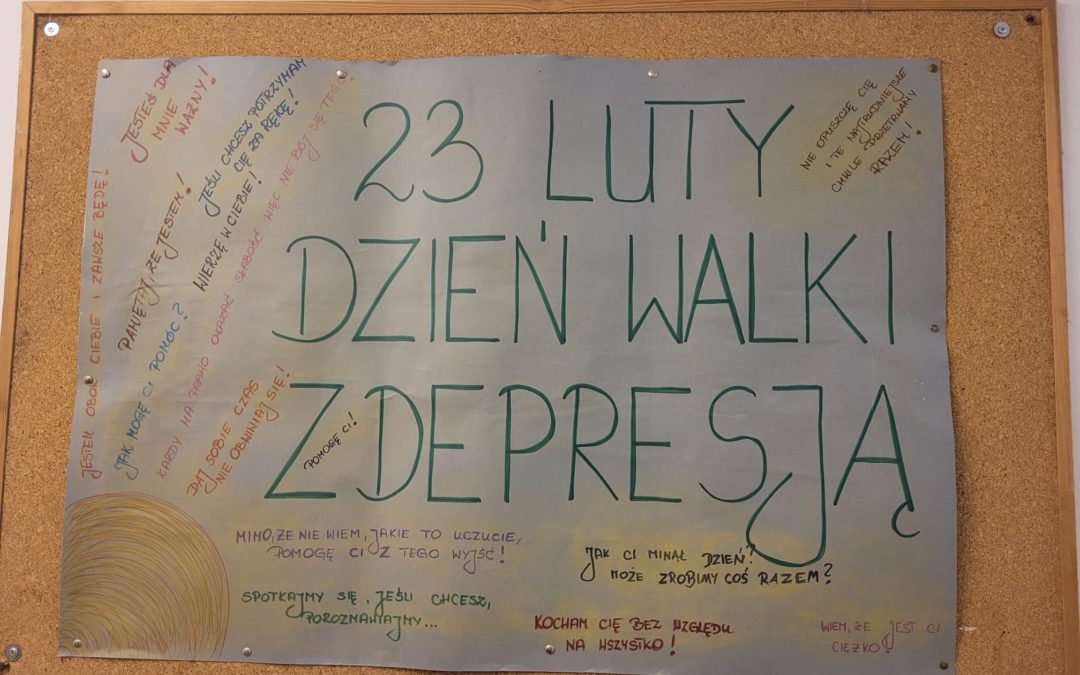 23 LUTY
DZIEŃ WALKI
Z DEPRESJĄ
JESTEŚ DLA
MNIE
WAŻNY!
JEŚLI CHCESZ POTRZYMAM
CIĘ ZA RĘKĘ!
NIE OPUSZCZĘ CIĘ
I TE NAJTRUDNIEJSZE
CHWILE PRZETRWAMY
RAZEM!
JESTEM OBOK CIEBIE I ZAWSZE BĘDĘ!
PAMIĘTAJ, ŻE JESTEM!
WIERZĘ W CIEBIE!
JAK MOGĘ CI POMÓC?
KAŻDY MA PRAWO OKAZAĆ SŁABOŚĆ, WIĘC NIE BÓJ SIĘ TEGO!
DAJ SOBIE CZAS
NIE OBWINIAJ SIĘ!
POMOGĘ CI!
MIMO, ŻE NIE WIEM, JAKIE TO UCZUCIE,
POMOGĘ CI Z TEGO WYJŚĆ!
JAK CI MINĄŁ DZIEŃ?
MOŻE ZROBIMY COŚ RAZEM?
SPOTKAJMY SIĘ, JEŚLI CHCESZ,
POROZMAWIAJMY...
KOCHAM CIĘ BEZ WZGLĘDU
NA WSZYSTKO!
WIEM, ŻE JEST CI
CIĘŻKO!